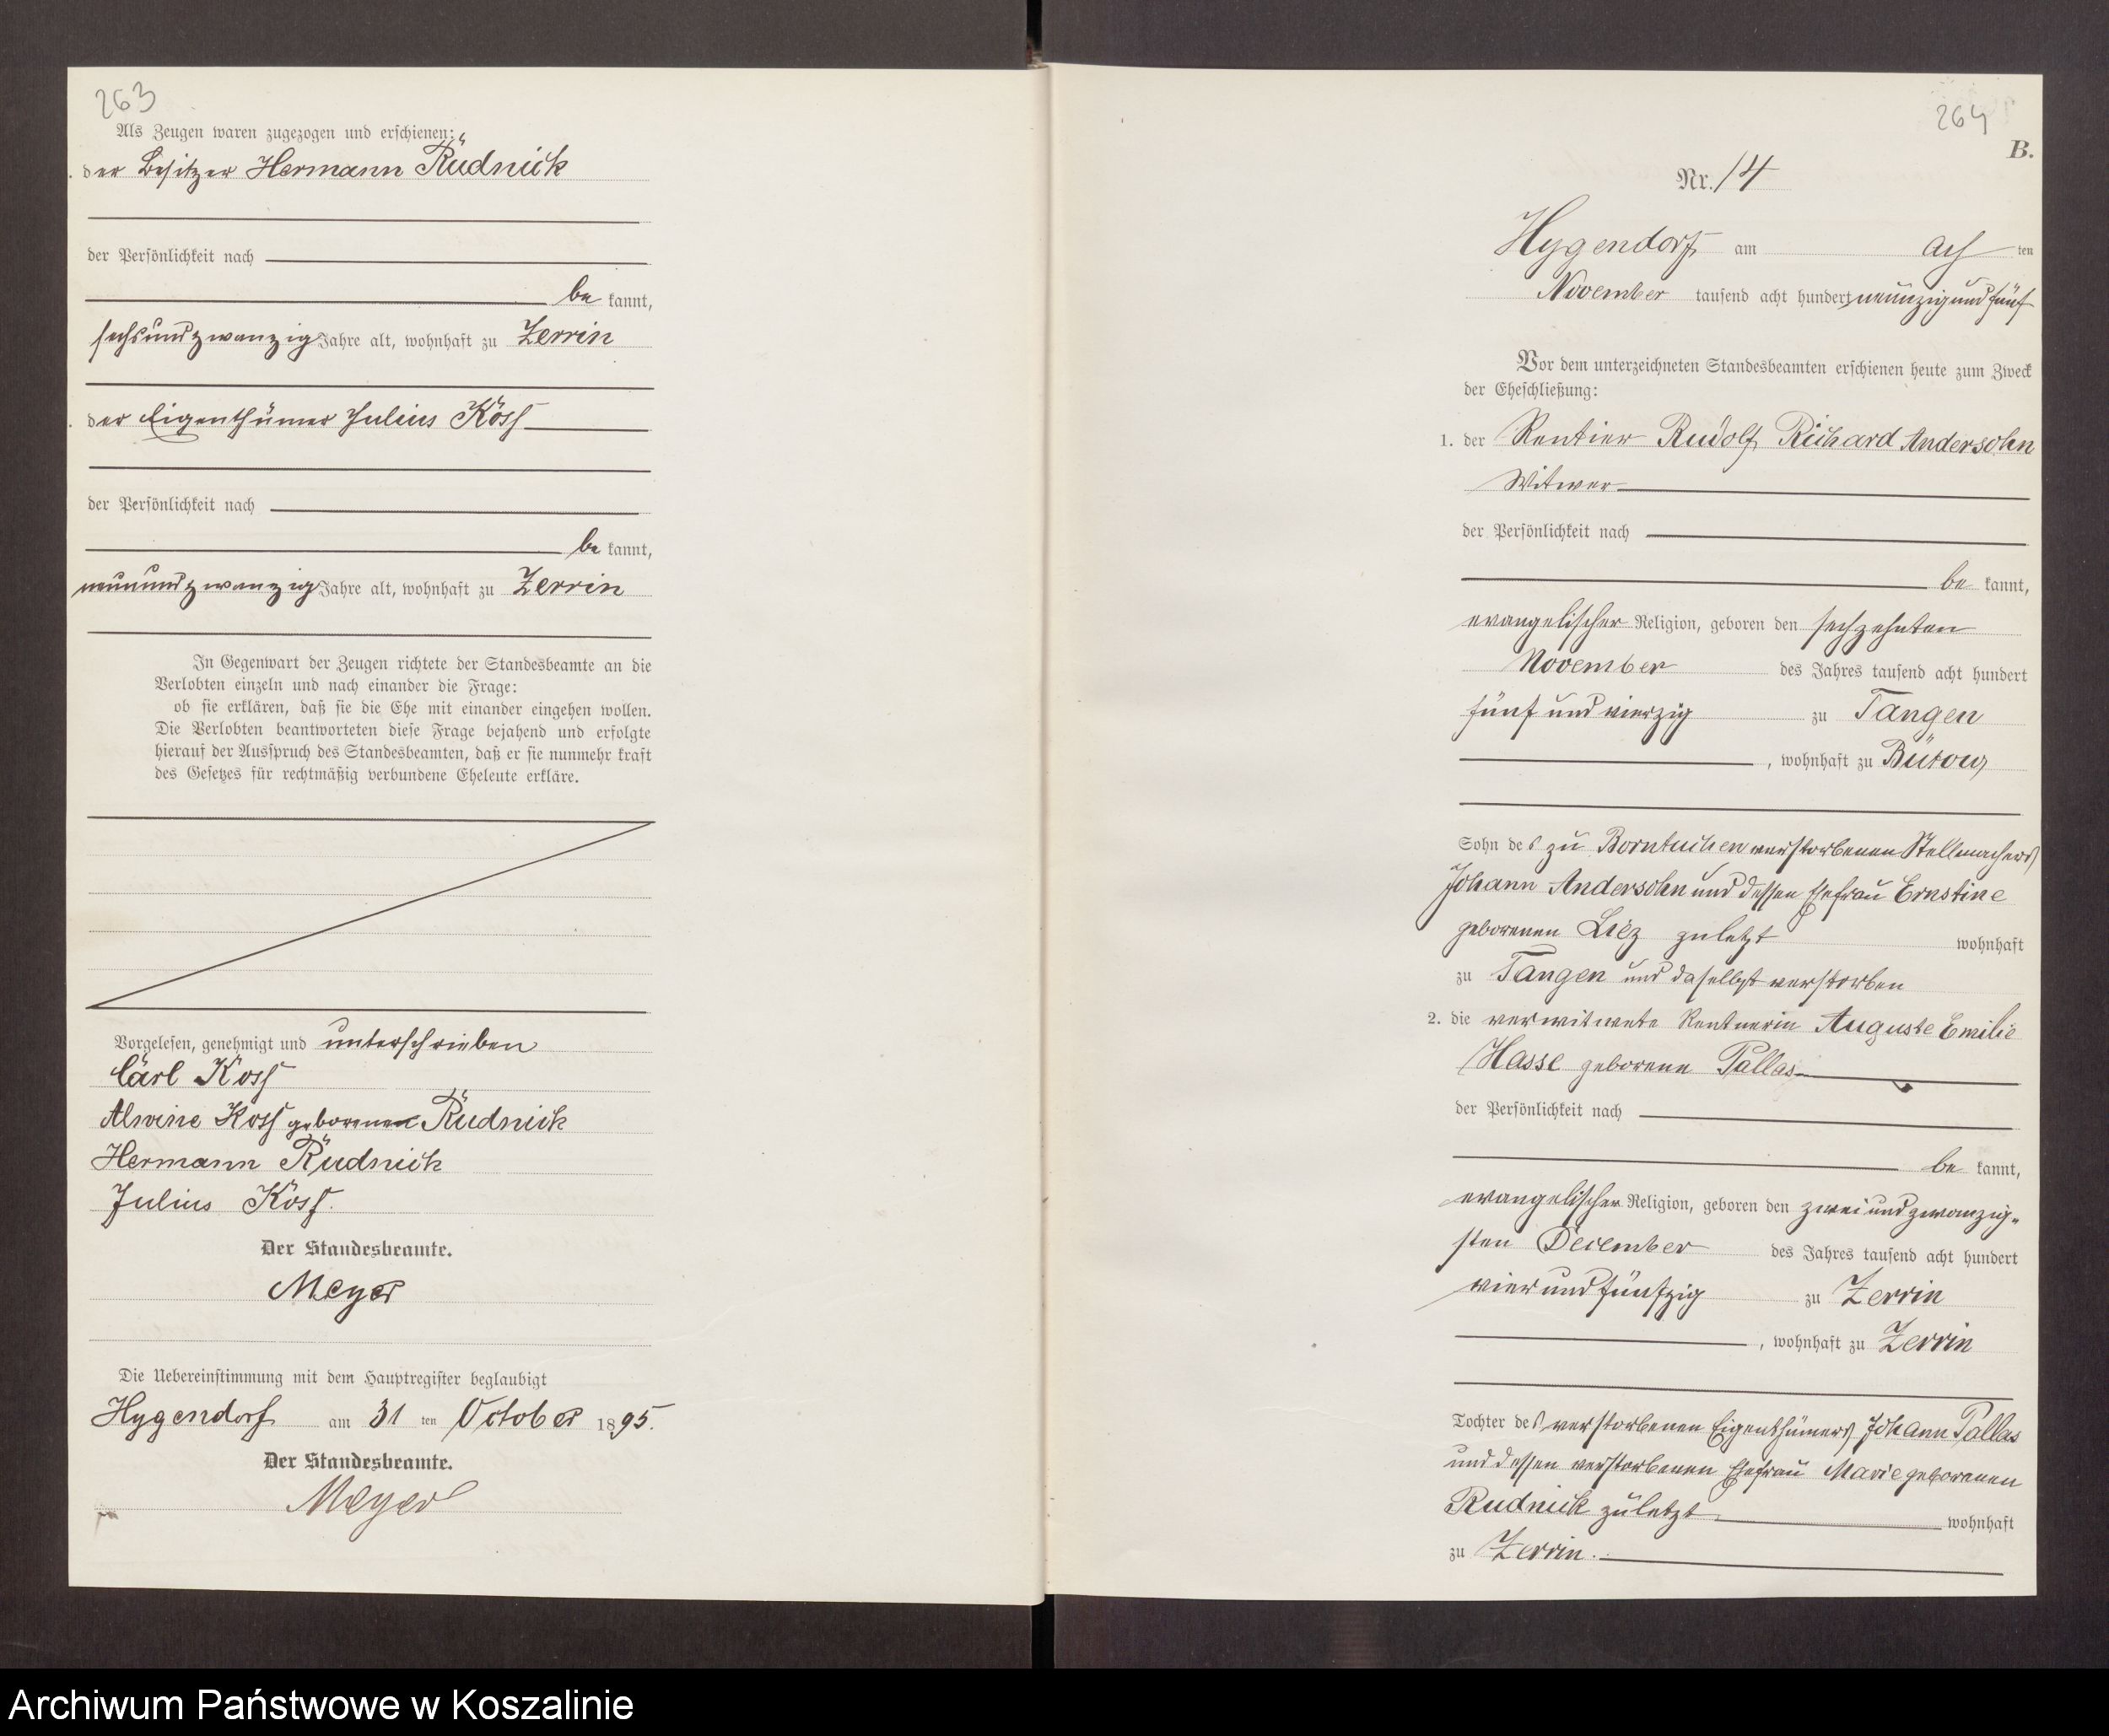 263
Als Zeugen waren zugezogen und erschienen:
der Besitzer Hermann Rudnick
der Persönlichkeit nach
be kannt,
sechsundzwanzig Jahre alt, wohnhaft zu Zerrin
der Eigenthümer Julius Koss
der Persönlichkeit nach
be kannt,
neunundzwanzig Jahre alt, wohnhaft zu Zerrin
In Gegenwart der Zeugen richtete der Standesbeamte an die
Verlobten einzeln und nach einander die Frage:
ob sie erklären, daß sie die Ehe mit einander eingehen wollen.
Die Verlobten beantworteten diese Frage bejahend und erfolgte
hierauf der Ausspruch des Standesbeamten, daß er sie nunmehr kraft
des Gesetzes für rechtmäßig verbundene Eheleute erkläre.
Vorgelesen, genehmigt und unterschrieben
Carl Koss
Alwine Koss geborene Rudnick
Hermann Rudnick
Julius Koss.
Der Standesbeamte.
Meyer
Die Uebereinstimmung mit dem Hauptregister beglaubigt
Hygendorf am 31 ten October 1895.
Der Standesbeamte.
Meyer
264
B.
Nr. 14
Hygendorf am ach ten
November tausend acht hundert neunzig und fünf
Vor dem unterzeichneten Standesbeamten erschienen heute zum Zweck
der Eheschließung:
1. der Rentier Rudolf Richard Andersohn
Witwer
der Persönlichkeit nach
be kannt,
evangelischer Religion, geboren den sechzehnten
November des Jahres tausend acht hundert
fünf und vierzig zu Tangen
, wohnhaft zu Bütow
Sohn des zu Borntuchen verstorbenen Stellmachers
Johann Andersohn und dessen Ehefrau Ernstine
geborenen zuletzt wohnhaft
zu Tangen und daselbst verstorben
2. die verwitwete Rentnerin Auguste Emilie
Hasse geborene Pallas
der Persönlichkeit nach
be kannt,
evangelischer Religion, geboren den zwei und zwanzig-
sten December des Jahres tausend acht hundert
vier und fünfzig zu Zerrin
, wohnhaft zu Zerrin
Tochter des verstorbenen Eigenthümers Johann Pallas
und dessen verstorbenen Ehefrau Marie geborenen
Rudnick zuletzt wohnhaft
zu Zerrin.
Archiwum Państwowe w Koszalinie